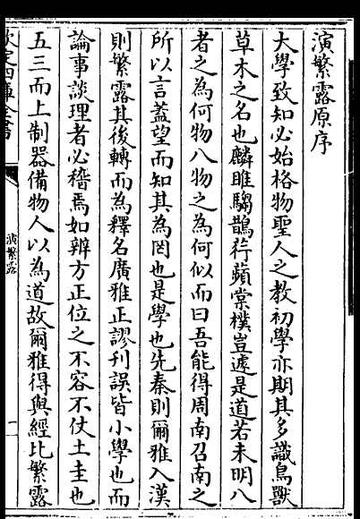 演繁露原序
大學致知必始格物聖人之教初學亦期其多識鳥獸
草木之名也麟雎騶鵲荇蘋棠樸豈遽是道若未明八
者之為何物八物之為何似而曰吾能得周南召南之
所以言蓋望而知其為罔也是學也先秦則爾雅入漢
則繁露其後轉而為釋名廣雅正謬刊誤皆小學也而
論事談理者必稽焉如辨方正位之不容不仗土圭也
五三而上制器備物人以為道故爾雅得與經比繁露
欽定四庫全書
演繁露
一